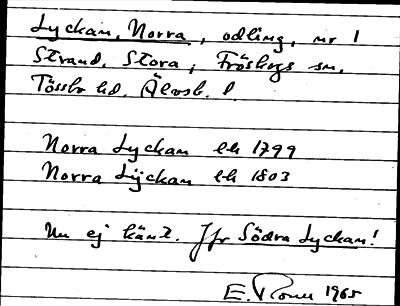 Lyckan, Norra, odling, nr 1
Strand, Stora, Fröskogs sn,
Tössbo hd. Älvsb. l
Norra Lyckan lh 1799
Norra Lyckan lh 1803
Nu ej känt. Jfr Södra Lyckan!
E. 1965